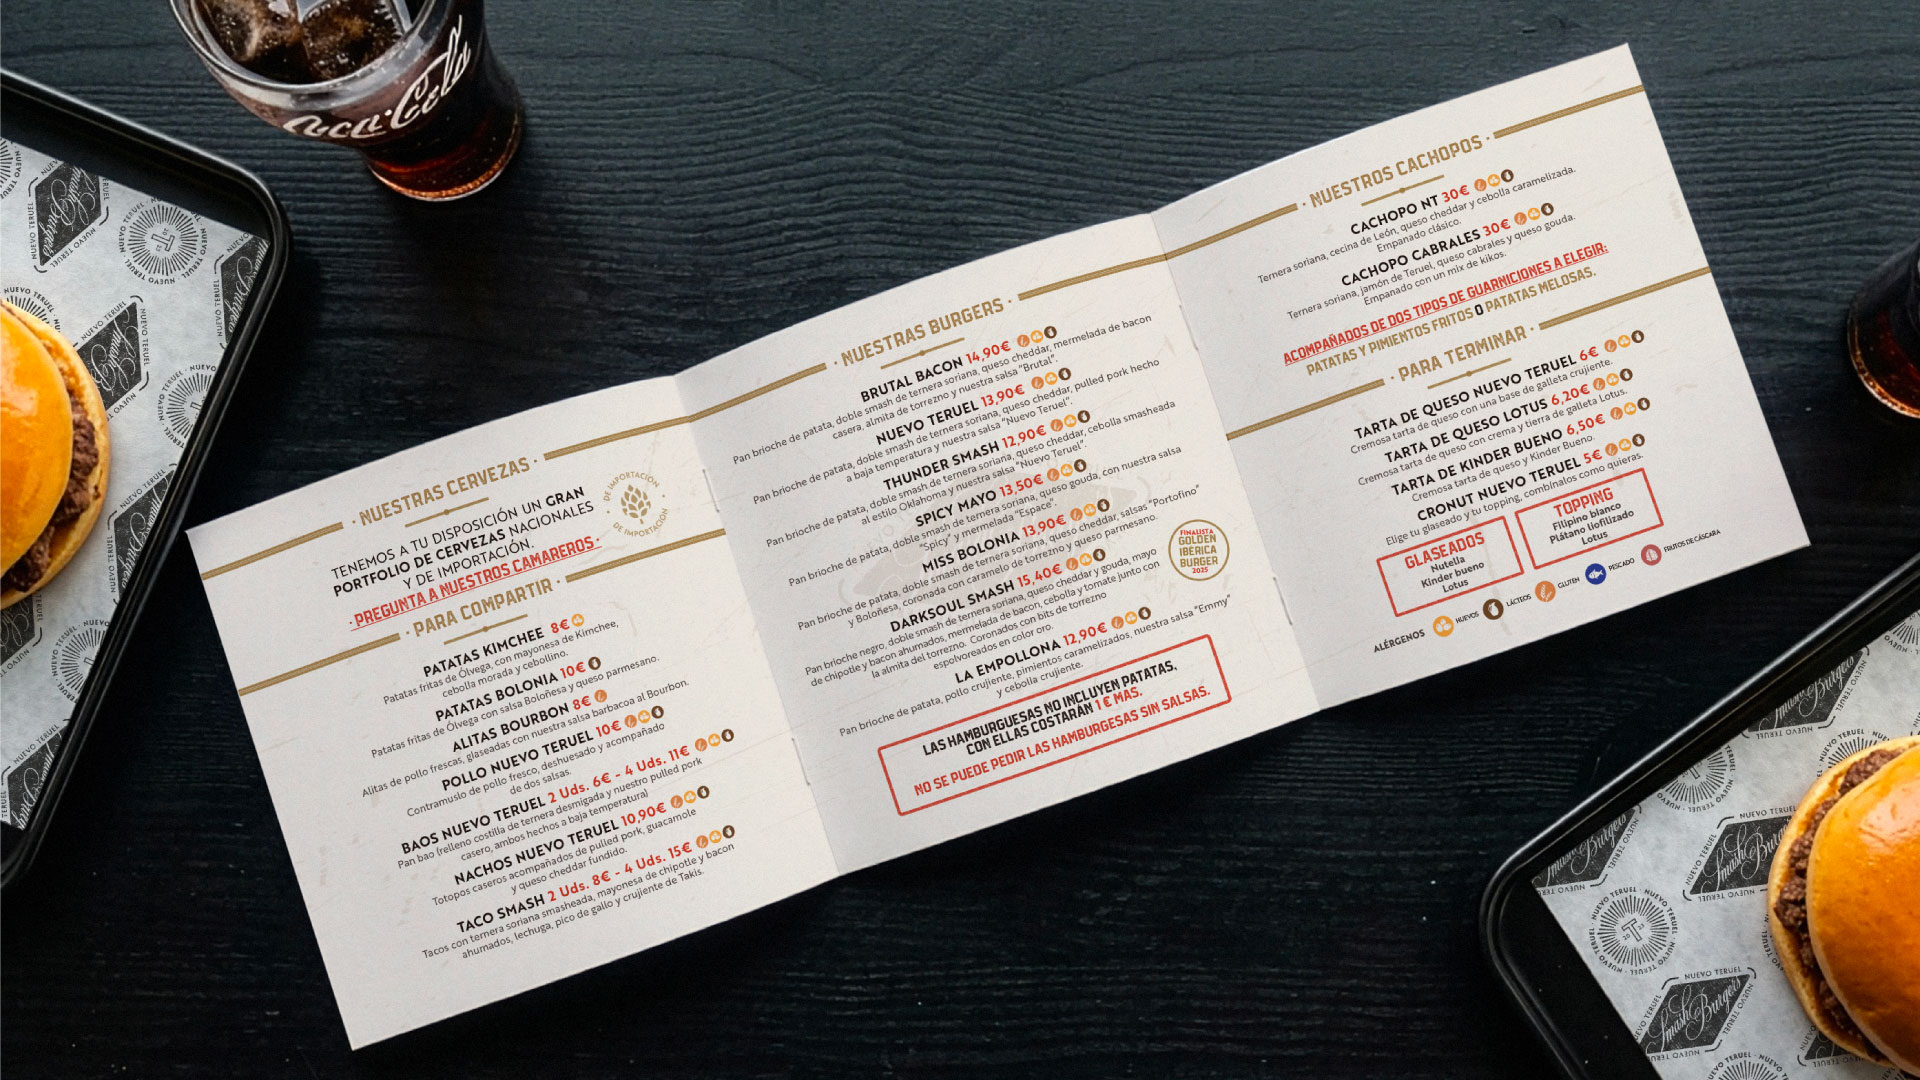 Coca-Cola
· NUESTRAS CERVEZAS ·
TENEMOS A TU DISPOSICIÓN UN GRAN
PORTFOLIO DE CERVEZAS NACIONALES
Y DE IMPORTACIÓN.
· PREGUNTA A NUESTROS CAMAREROS ·
DE IMPORTACIÓN
DE IMPORTACIÓN
· PARA COMPARTIR ·
PATATAS KIMCHEE 8€
Patatas fritas de Ólvega, con mayonesa de Kimchee,
cebolla morada y cebollino.
PATATAS BOLONIA 10€
Patatas fritas de Ólvega con salsa Boloñesa y queso parmesano.
ALITAS BOURBON 8€
Alitas de pollo frescas, glaseadas con nuestra salsa barbacoa al Bourbon.
POLLO NUEVO TERUEL 10€
Contramuslo de pollo fresco, deshuesado y acompañado
de dos salsas.
BAOS NUEVO TERUEL 2 Uds. 6€ - 4 Uds. 11€
Pan bao (relleno costilla de ternera desmigada y nuestro pulled pork
casero, ambos hechos a baja temperatura)
NACHOS NUEVO TERUEL 10,90€
Totopos caseros acompañados de pulled pork, guacamole
y queso cheddar fundido.
TACO SMASH 2 Uds. 8€ - 4 Uds. 15€
Tacos con ternera soriana smasheada, mayonesa de chipotle y bacon
ahumados, lechuga, pico de gallo y crujiente de Takis.
· NUESTRAS BURGERS ·
BRUTAL BACON 14,90€
Pan brioche de patata, doble smash de ternera soriana, queso cheddar, mermelada de bacon
casera, almita de torrezno y nuestra salsa "Brutal".
NUEVO TERUEL 13,90€
Pan brioche de patata, doble smash de ternera soriana, queso cheddar, pulled pork hecho
a baja temperatura y nuestra salsa "Nuevo Teruel".
THUNDER SMASH 12,90€
Pan brioche de patata, doble smash de ternera soriana, queso cheddar, cebolla smasheada
al estilo Oklahoma y nuestra salsa "Nuevo Teruel".
SPICY MAYO 13,50€
Pan brioche de patata, doble smash de ternera soriana, queso gouda, con nuestra salsa
"Spicy" y mermelada "Espace".
MISS BOLONIA 13,90€
Pan brioche de patata, doble smash de ternera soriana, queso cheddar, salsas "Portofino"
y Boloñesa, coronada con caramelo de torrezno y queso parmesano.
DARKSOUL SMASH 15,40€
Pan brioche negro, doble smash de ternera soriana, queso cheddar y gouda, mayo
de chipotle y bacon ahumados, mermelada de bacon, cebolla y tomate junto con
la almita del torrezno. Coronados con bits de torrezno
espolvoreados en color oro.
FINALISTA
GOLDEN
IBÉRICA
BURGER
2025
LA EMPOLLONA 12,90€
Pan brioche de patata, pollo crujiente, pimientos caramelizados, nuestra salsa "Emmy"
y cebolla crujiente.
LAS HAMBURGUESAS NO INCLUYEN PATATAS,
CON ELLAS COSTARÁN 1 € MAS.
NO SE PUEDE PEDIR LAS HAMBURGESAS SIN SALSAS.
· NUESTROS CACHOPOS ·
CACHOPO NT 30€
Ternera soriana, cecina de León, queso cheddar y cebolla caramelizada.
Empanado clásico.
CACHOPO CABRALES 30€
Ternera soriana, jamón de Teruel, queso cabrales y queso gouda.
Empanado con un mix de kikos.
ACOMPAÑADOS DE DOS TIPOS DE GUARNICIONES A ELEGIR:
PATATAS Y PIMIENTOS FRITOS O PATATAS MELOSAS.
· PARA TERMINAR ·
TARTA DE QUESO NUEVO TERUEL 6€
Cremosa tarta de queso con una base de galleta crujiente.
TARTA DE QUESO LOTUS 6,20€
Cremosa tarta de queso con crema y tierra de galleta Lotus.
TARTA DE KINDER BUENO 6,50€
Cremosa tarta de queso y Kinder Bueno.
CRONUT NUEVO TERUEL 5€
Elige tu glaseado y tu topping, combínalos como quieras.
GLASEADOS
Nutella
Kinder bueno
Lotus
TOPPING
Filipino blanco
Plátano liofilizado
Lotus
ALÉRGENOS HUEVOS LÁCTEOS GLUTEN PESCADO FRUTOS DE CÁSCARA
NUEVO TERUEL
Smash Burgers
NUEVO TERUEL · NUEVO TERUEL
20 T 23
NUEVO TERUEL
Smash Burgers
NUEVO TERUEL